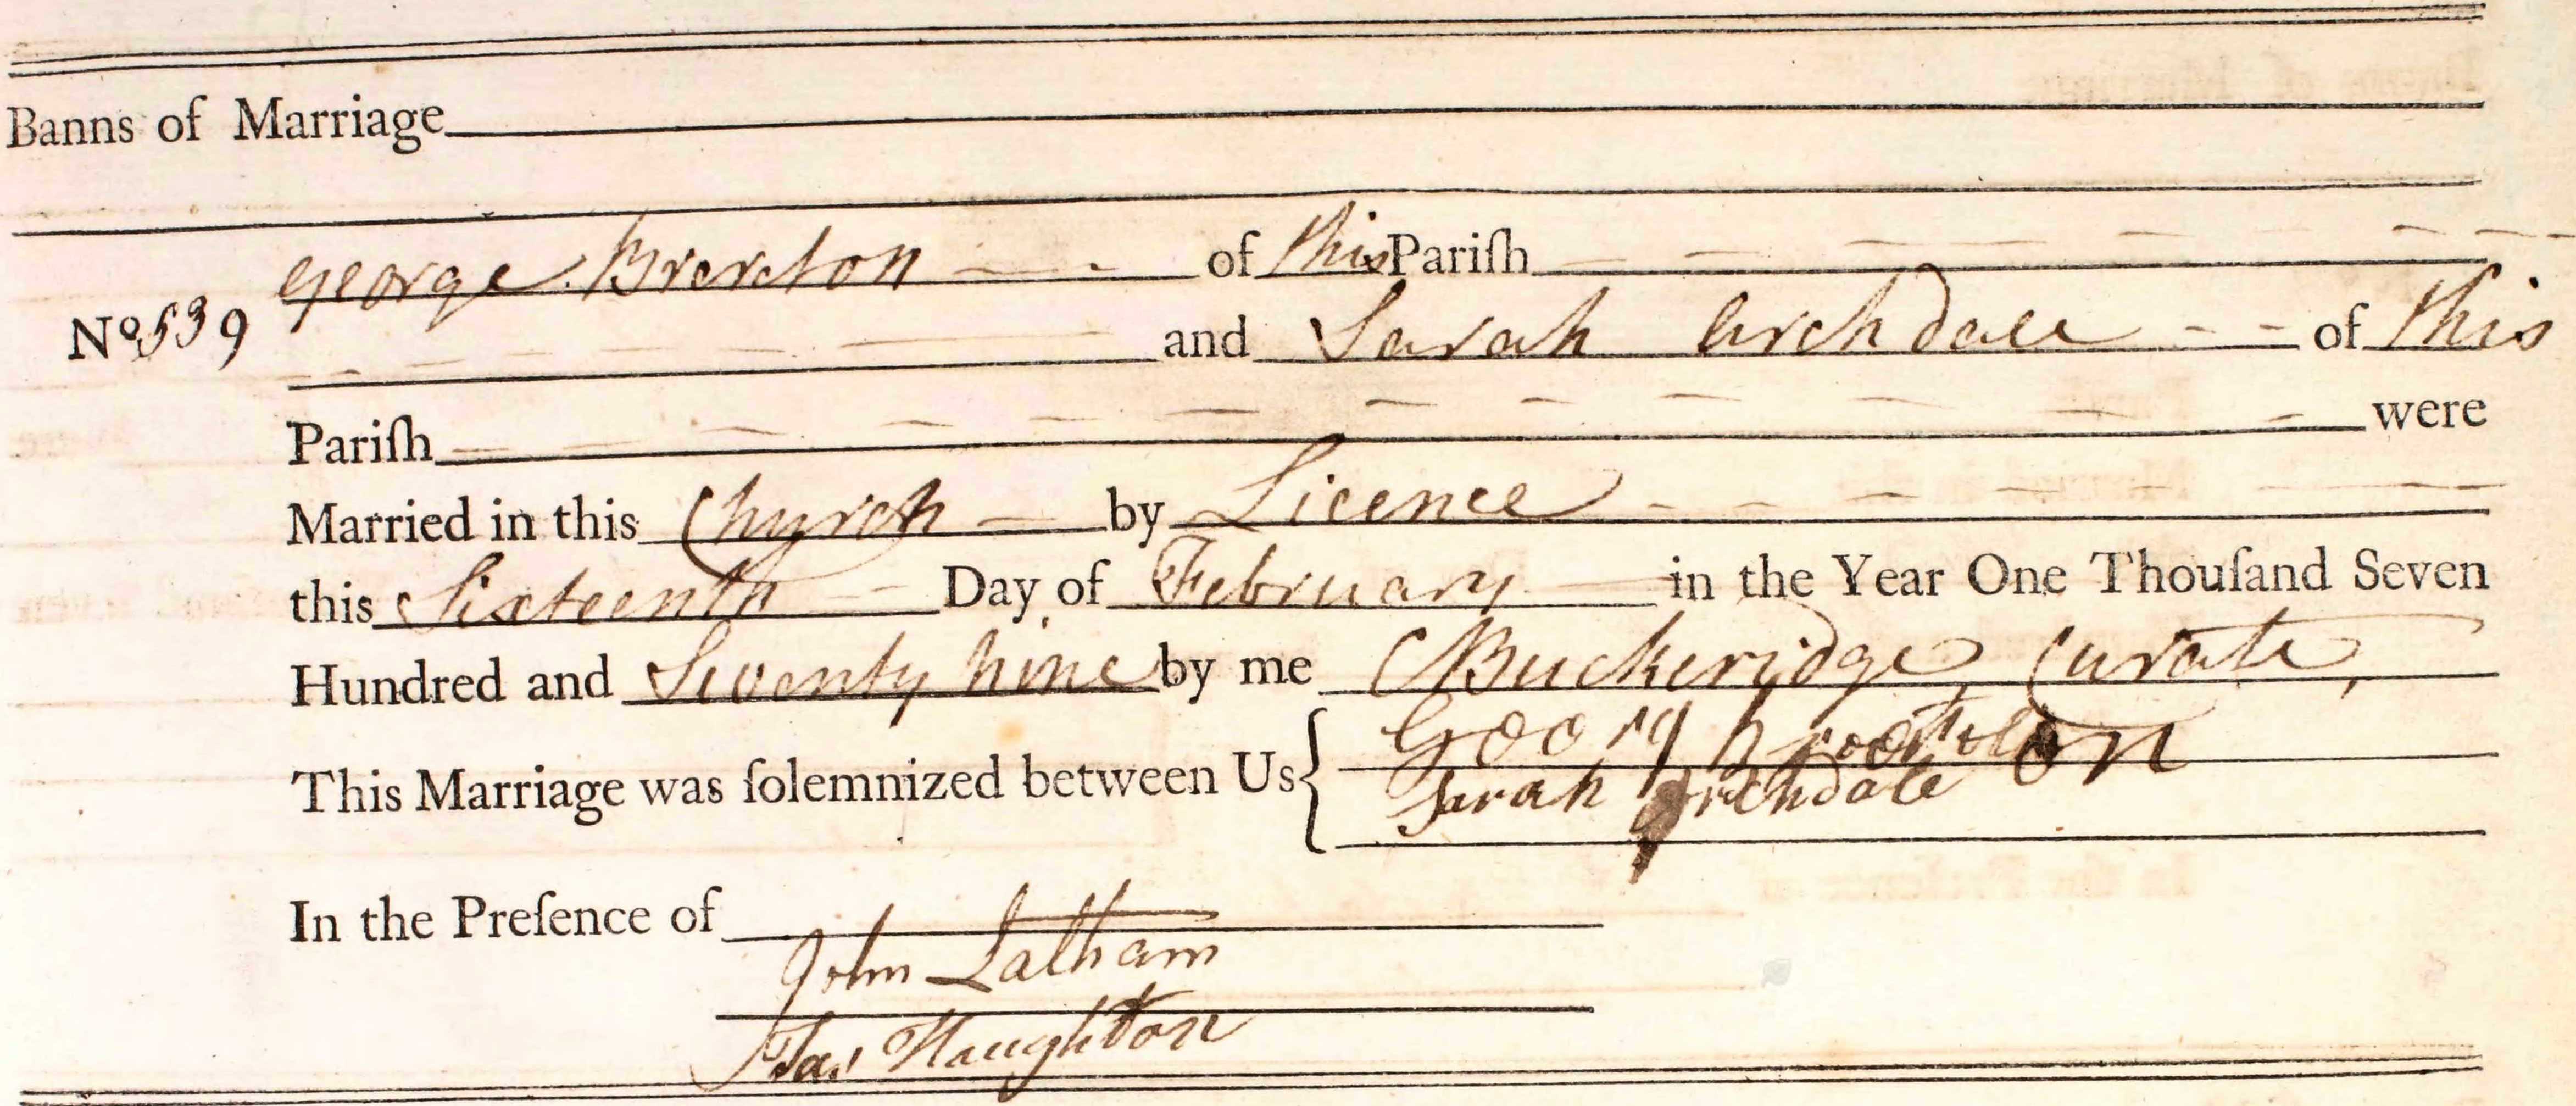 Banns of Marriage
George Brereton of this Pariſh
No. 539 and Sarah Archdale of this
Pariſh were
Married in this Church by Licence
this Sixteenth Day of February in the Year One Thouſand Seven
Hundred and Seventy nine by me CBuckeridge, Curate,
This Marriage was ſolemnized between Us
Sarah Archdale
In the Preſence of
John Latham
Jas Haughton